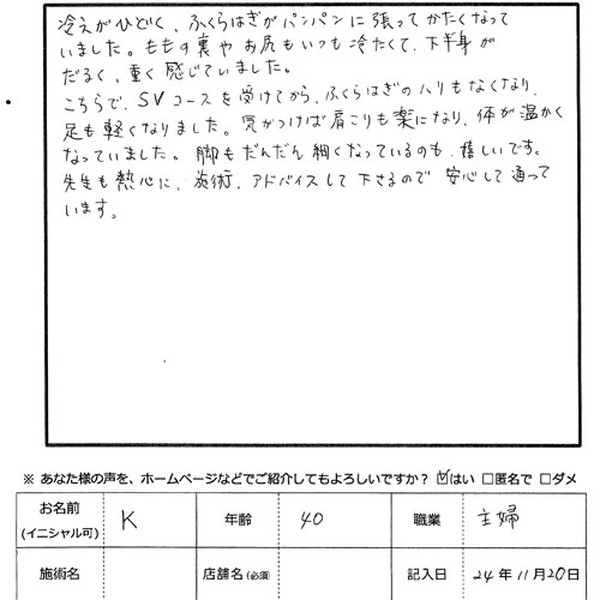 冷えがひどく、ふくらはぎがパンパンに張ってかたくなって
いました。ももの裏やお尻もいつも冷たくて、下半身が
だるく、重く感じていました。
こちらで、SVコースを受けてから、ふくらはぎのハリもなくなり、
足も軽くなりました。気がつけば肩こりも楽になり、体が温かく
なっていました。脚もだんだん細くなっているのも、嬉しいです。
先生も熱心に、施術、アドバイスして下さるので安心して通って
います。
※ あなた様の声を、ホームページなどでご紹介してもよろしいですか？ ☑はい □匿名で □ダメ
お名前
(イニシャル可) K 年齢 40 職業 主婦
施術名 店舗名(必須) 記入日 24年11月20日